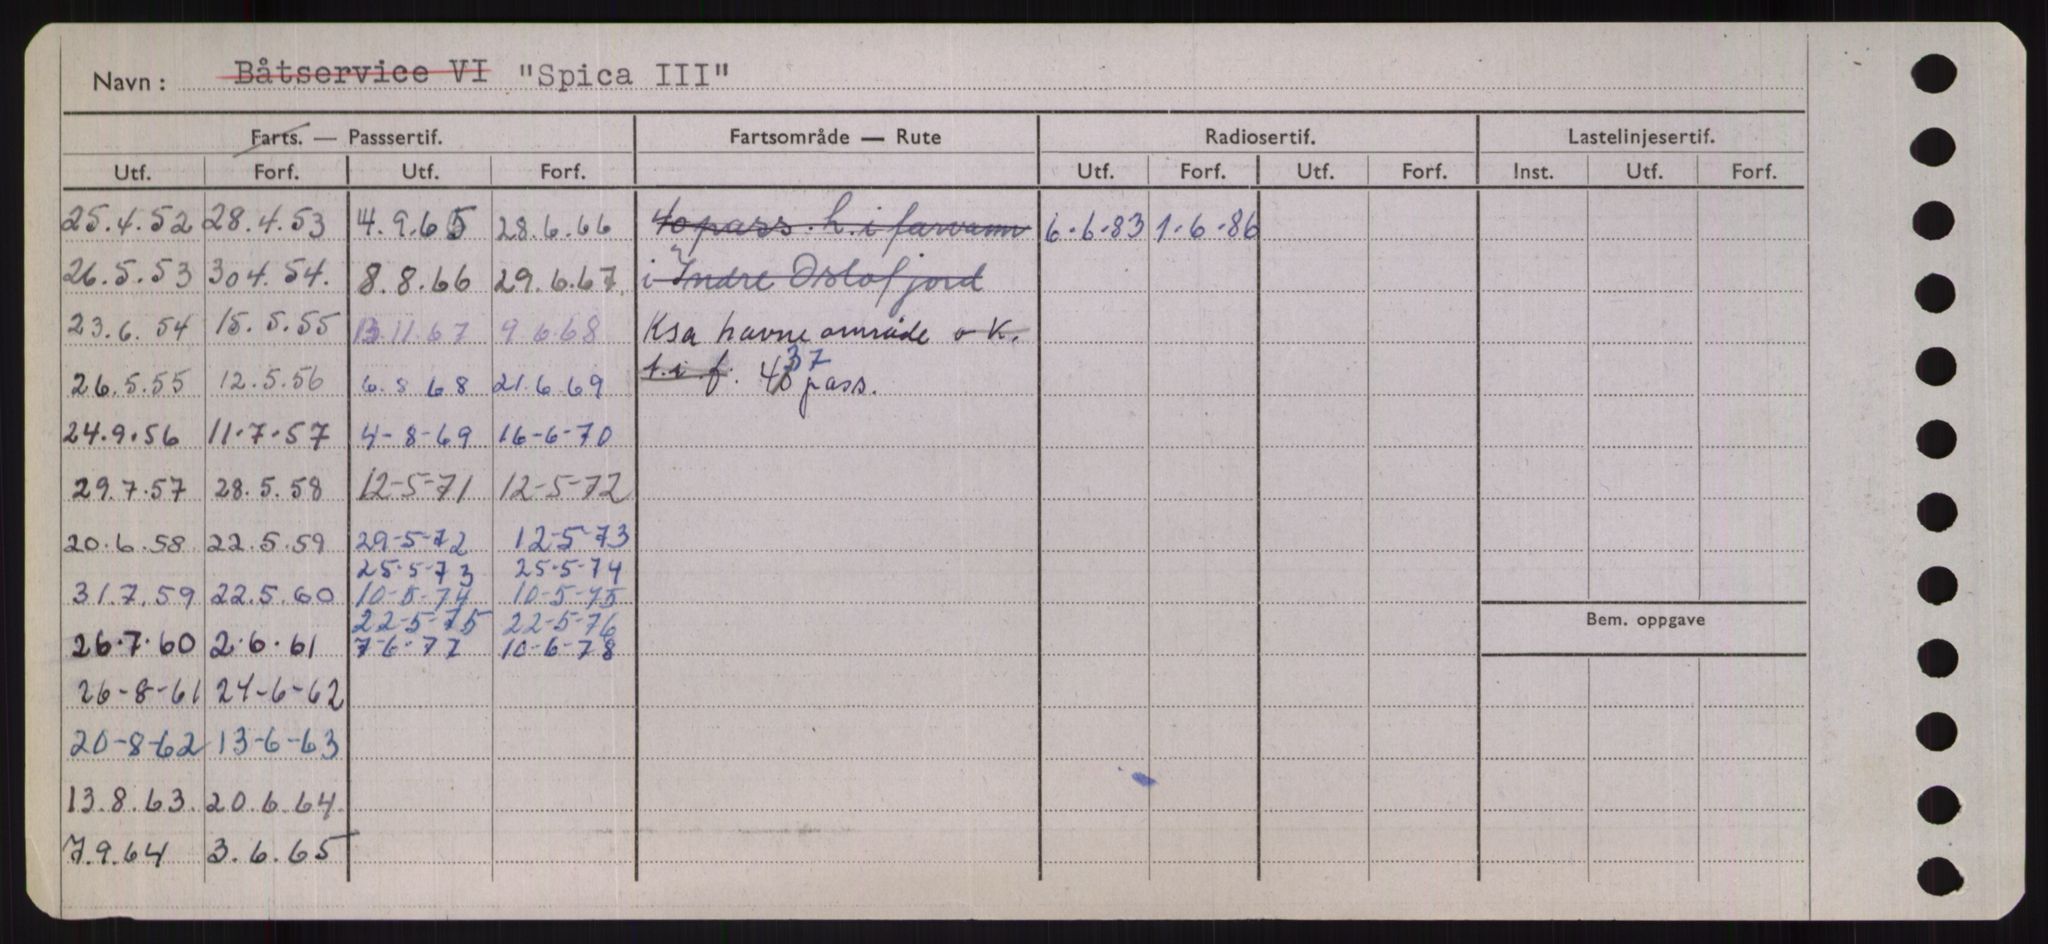 Navn : Båtservice VI "Spica III"
Farts. — Passsertif. Fartsområde — Rute Radiosertif. Lastelinjesertif.
Utf. Forf. Utf. Forf. Utf. Forf. Utf. Forf. Inst. Utf. Forf.
25.4.52 28.4.53 4.9.65 28.6.66 40 pass. h. i farvann 6-6-83 1-6-86
26.5.53 304.54. 8.8.66 29.6.67. i Indre Oslofjord
23.6.54 15.5.55 13.11.67 9.6.68 Ksa havneområde o K.
26.5.55 12.5.56 6.8 68 21.6.69 t.i.f. 40 37 pass.
24.9.56 11.7.57 4-8-69 16-6-70
29.7.57 28.5.58 12-5-71 12-5-72
20.6.58 22.5.59 29-5-72 12-5-73
25-5-73 25-5-74
31.7.59 22.5.60 10-5-74 10-5-75
22-5-75 22-5-76
26.7.60 2.6.61 7-6-77 10-6-78
Bem. oppgave
26-8-61 24-6-62
20-8-62 13-6-63
13.8.63. 20.6.64.
7.9.64 3.6.65